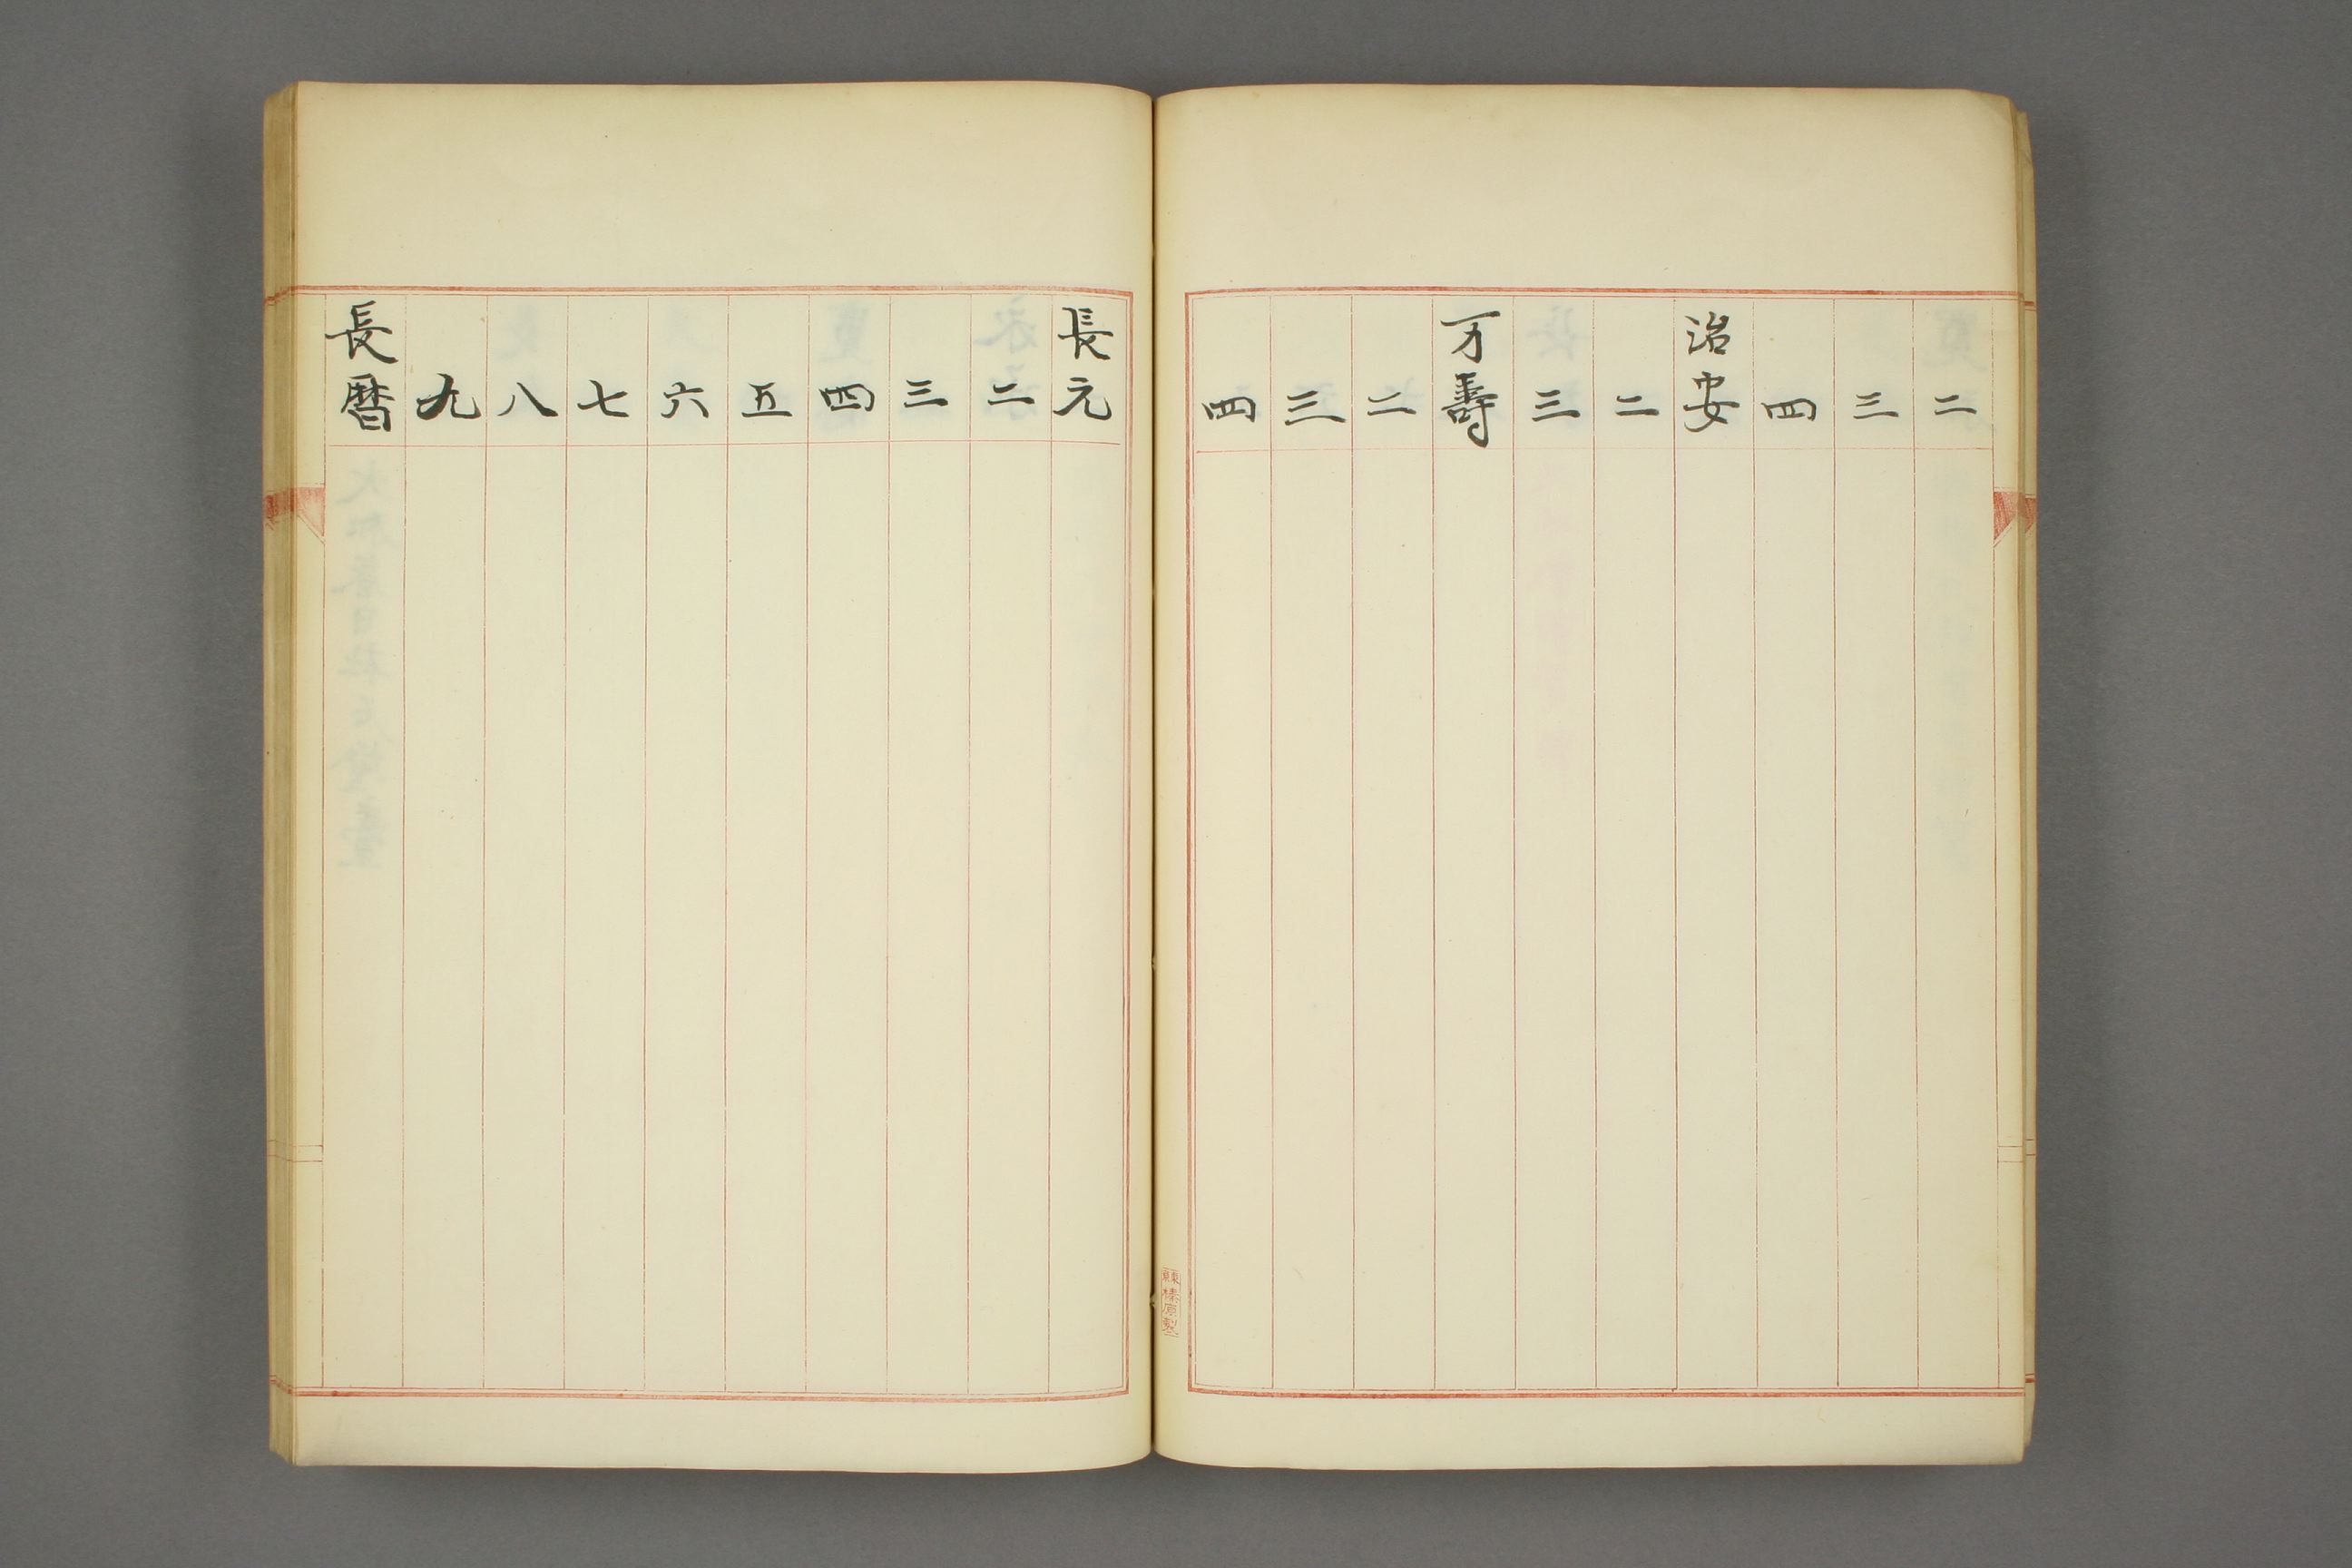 二
三
四
治安
二
三
万壽
二
三
四
榛原製
長元
二
三
四
五
六
七
八
九
長暦